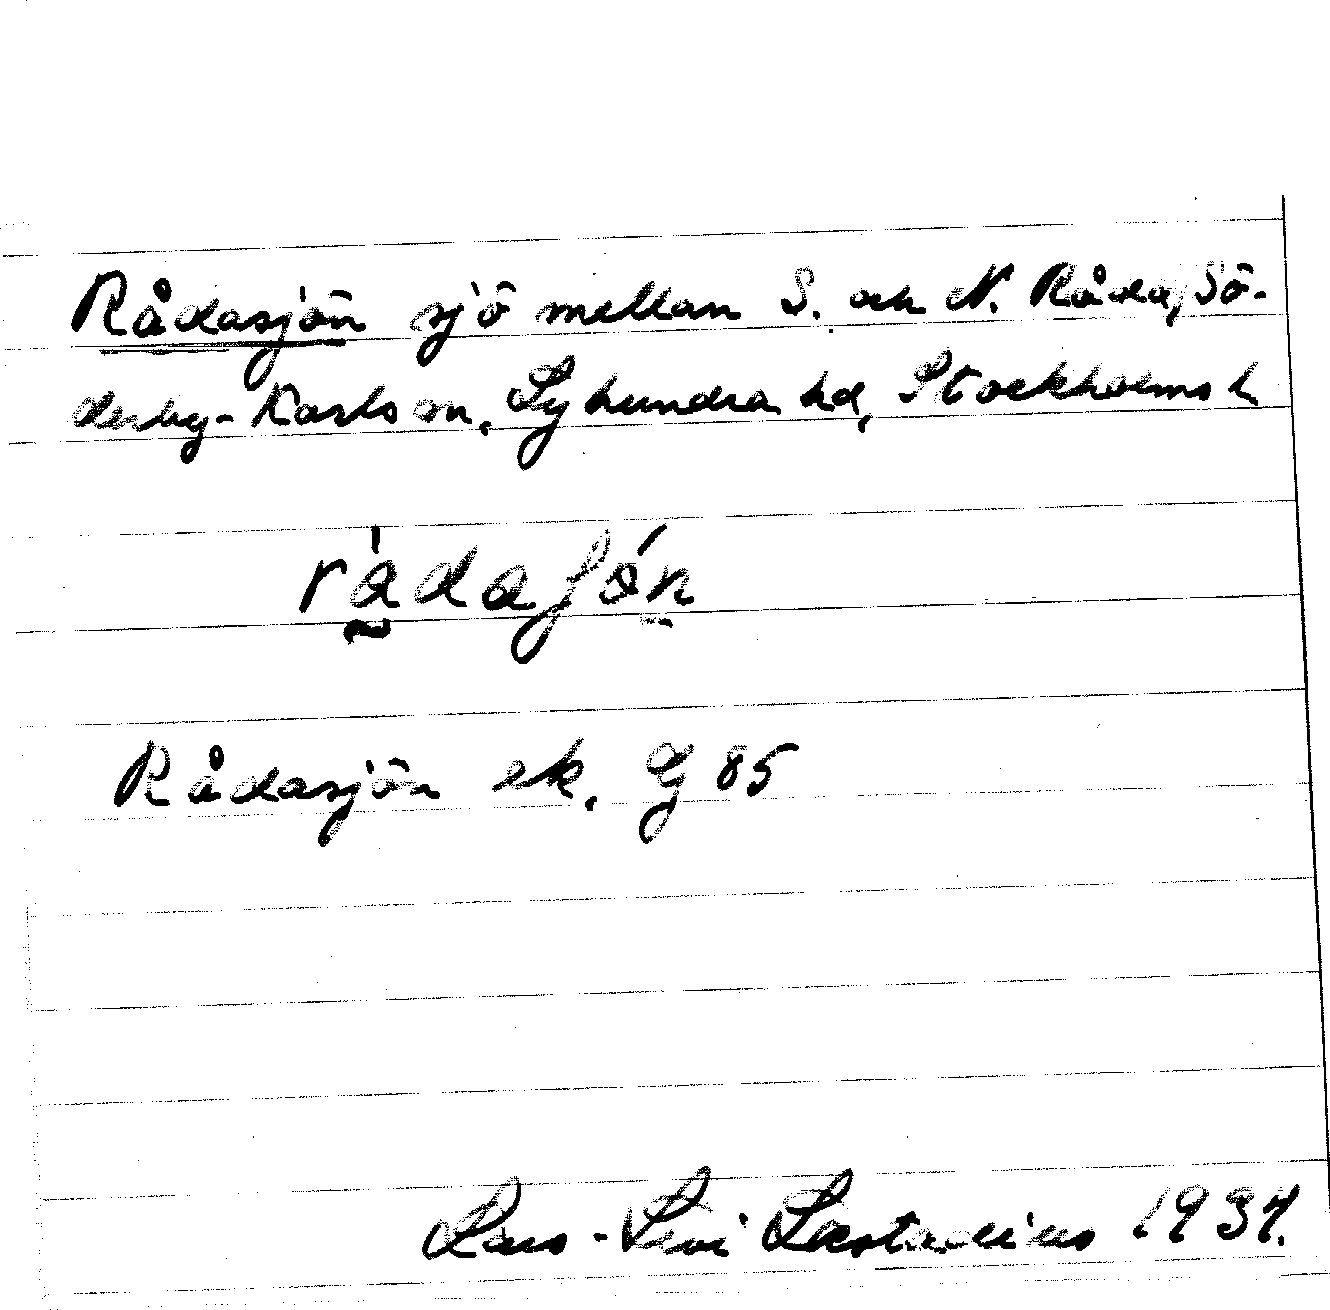 Rådasjön sjö mellan S. och N. Råda, Sö-
derby-Karls sn, Lyhundra hd, Stockholms l.
Rådasjön ek. G 85
Lars-Levi Læstadius 1937.